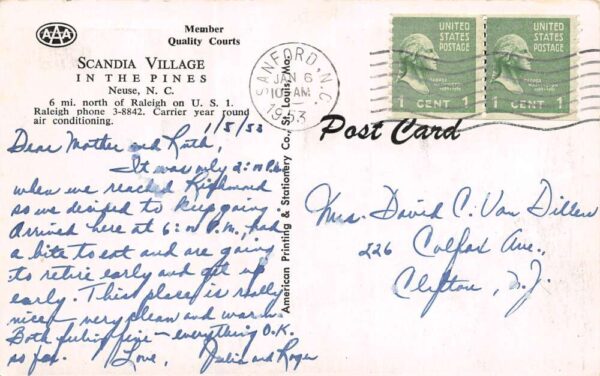 AAA
Member
Quality Courts
SCANDIA VILLAGE
IN THE PINES
Neuse, N. C.
6 mi. north of Raleigh on U. S. 1.
Raleigh phone 3-8842. Carrier year round
air conditioning.
1/5/53
Dear Mother and Ruth,
It was only 2:00 P.M.
when we reached Richmond
so we decided to keep going.
Arrived here at 6:00 P.M., had
a bite to eat and are going
to retire early and get up
early. This place is really
nice, very clean and warm.
Both feeling fine - everything O.K.
so far. Love, Julia and Roger
American Printing & Stationery Co., St. Louis, Mo.
Post Card
SANFORD, N.C.
JAN 6
10 AM
1953
UNITED
STATES
POSTAGE
1 CENT 1
UNITED
STATES
POSTAGE
1 CENT 1
Mrs. David C. Van Dillen
226 Colfax Ave.,
Clifton, N.J.